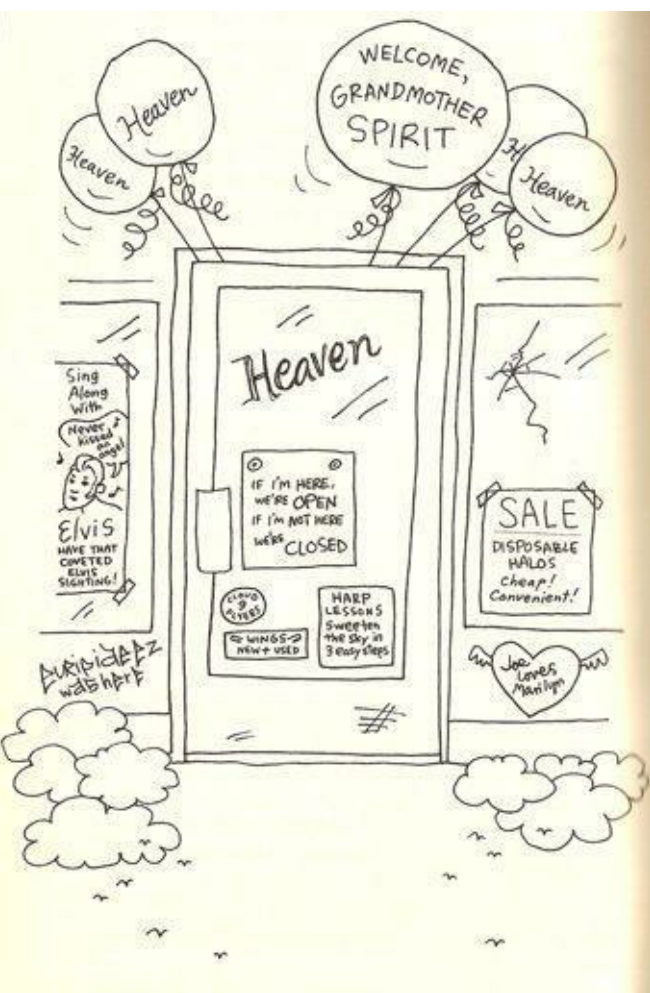 Heaven
Heaven
WELCOME,
GRANDMOTHER
SPIRIT
H
Heaven
Heaven
Sing
Along
With
Never
kissed
an
angel
Elvis
HAVE THAT
COVETED
ELVIS
SIGHTING!
IF I'M HERE,
WE'RE OPEN
IF I'M NOT HERE
WE'RE CLOSED
CLOUD
9
FLYERS
WINGS
NEW + USED
HARP
LESSONS
Sweeten
the sky in
3 easy steps
SALE
DISPOSABLE
HALOS
Cheap!
Convenient!
EURIPIDEEZ
was here
Joe
Loves
Marilyn